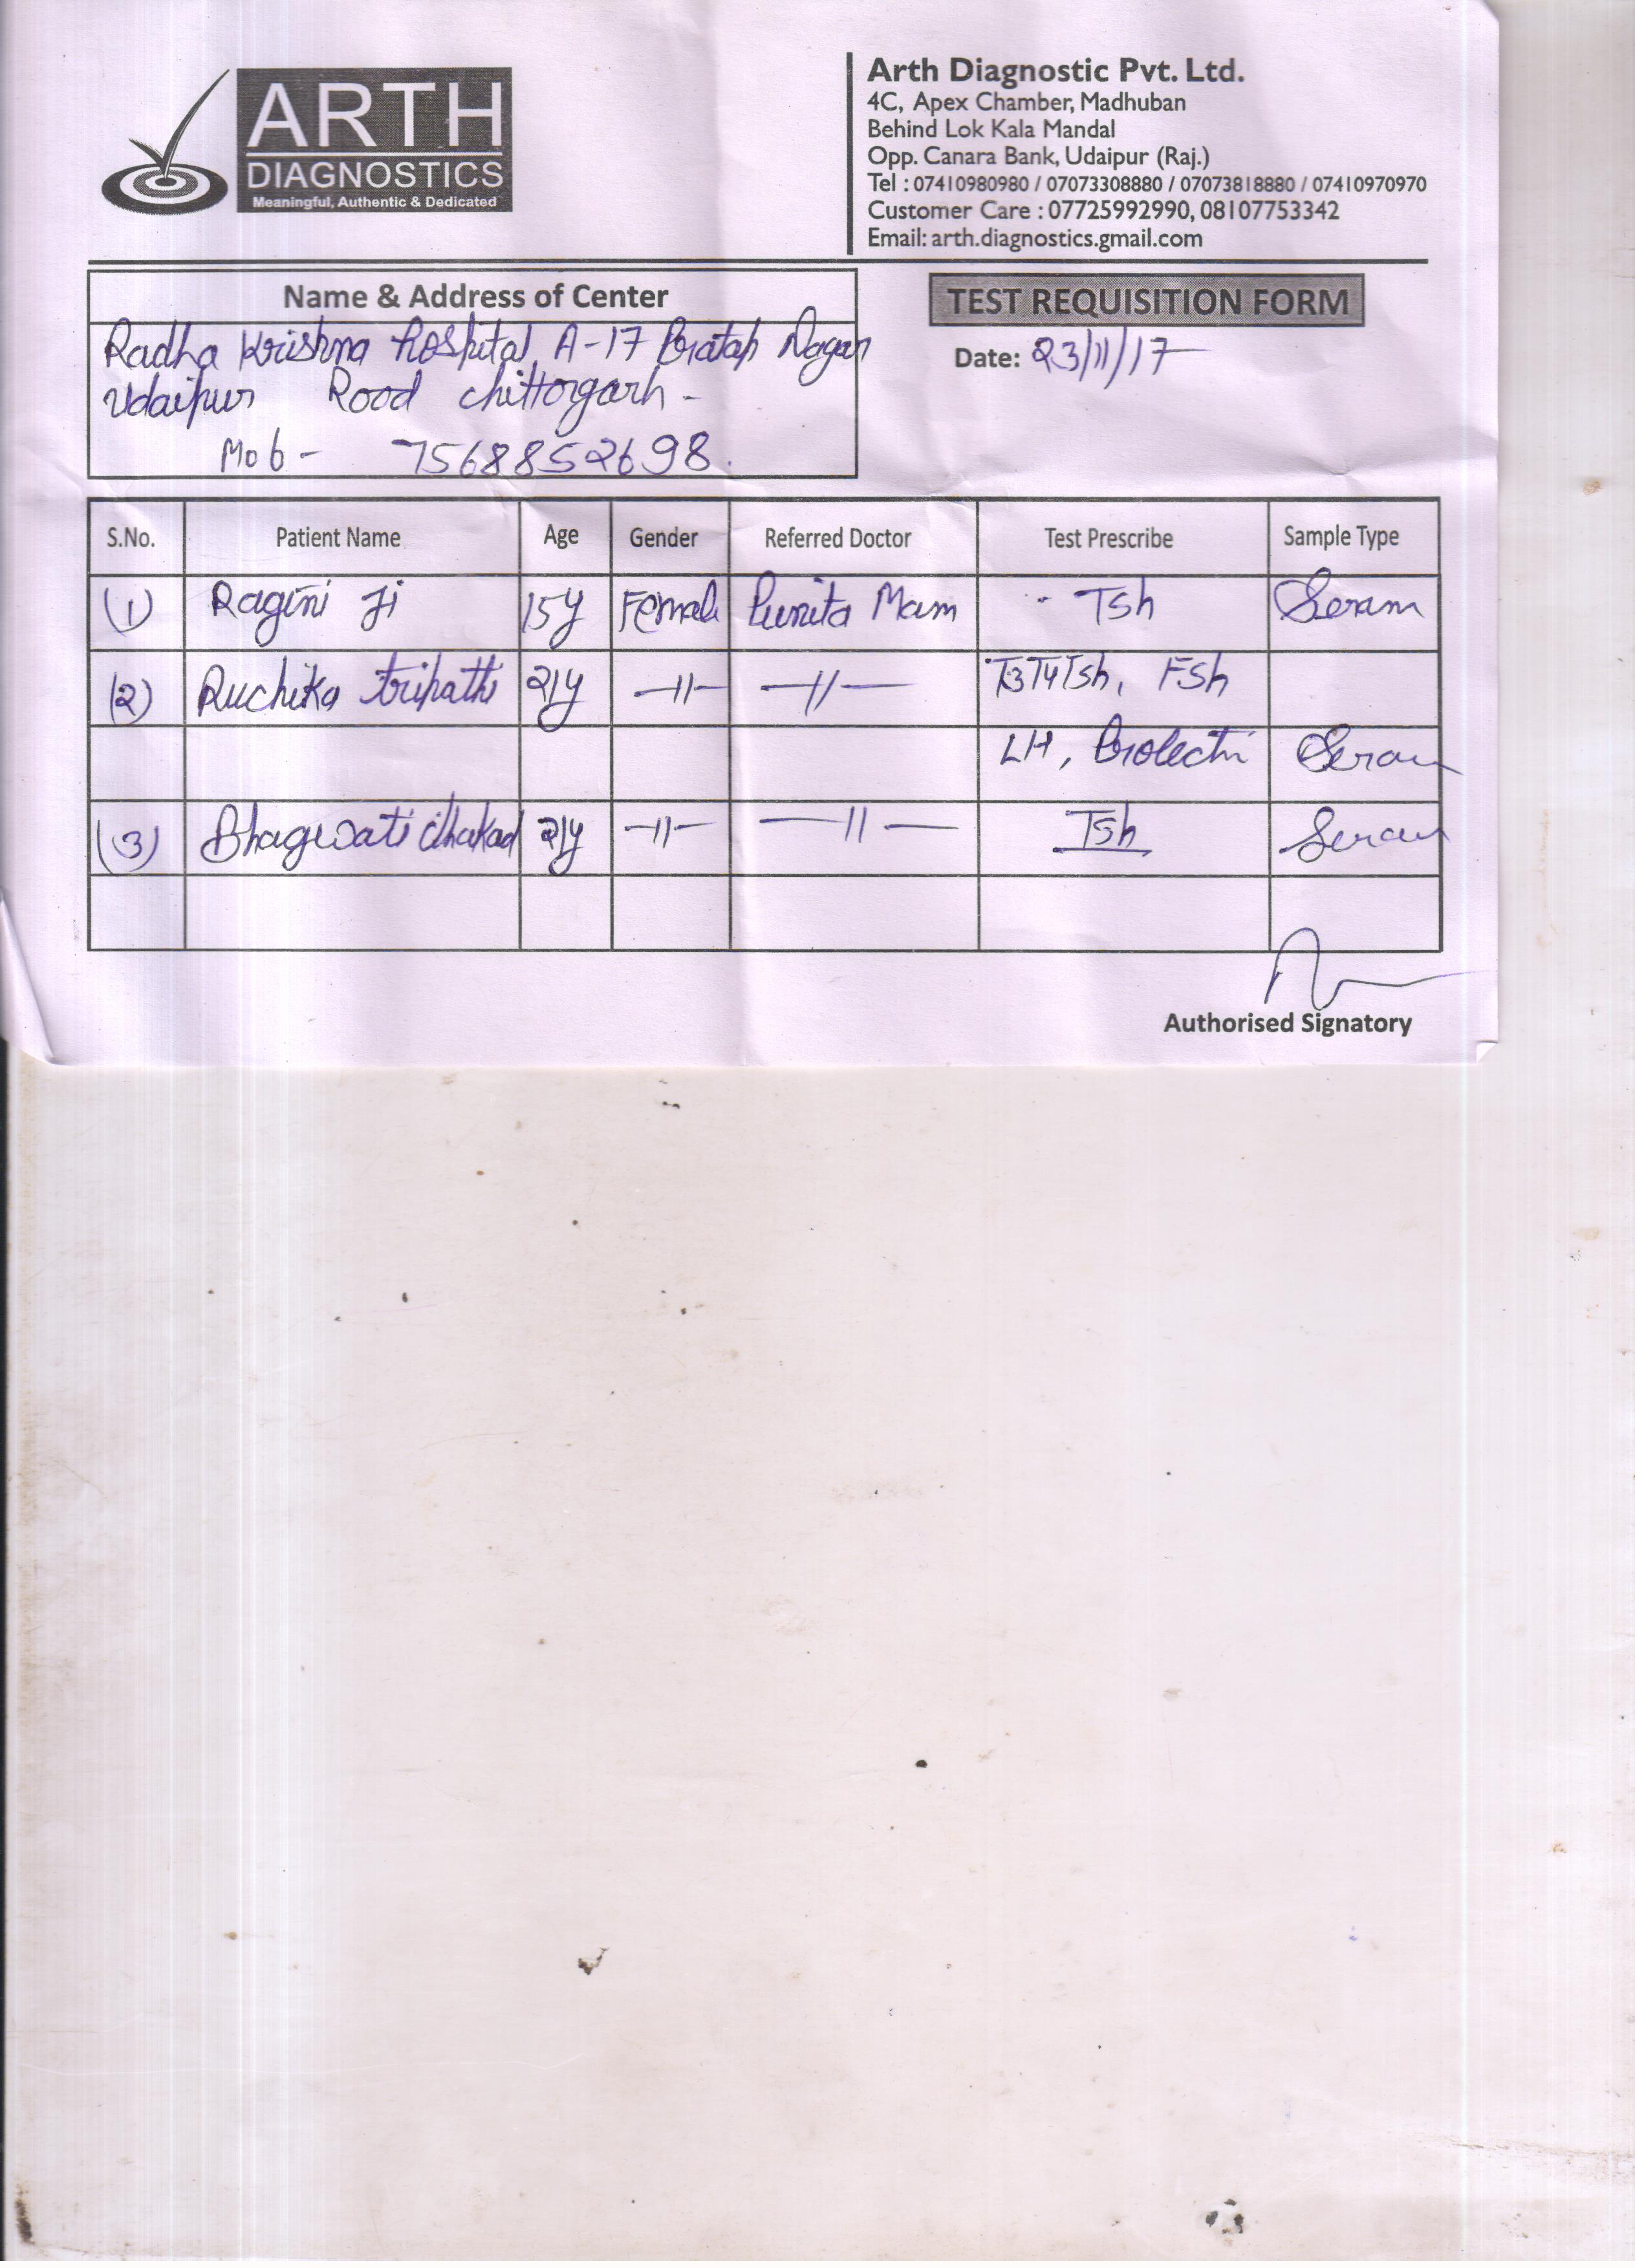 ARTH
DIAGNOSTICS
Meaningful, Authentic & Dedicated
Arth Diagnostic Pvt. Ltd.
4C, Apex Chamber, Madhuban
Behind Lok Kala Mandal
Opp. Canara Bank, Udaipur (Raj.)
Tel : 07410980980 / 07073308880 / 07073818880 / 07410970970
Customer Care : 07725992990, 08107753342
Email: arth.diagnostics.gmail.com
Name & Address of Center
Radha Krishna hospital, A-17 Pratap Nagar
Udaipur Rood chittorgarh -
Mob - 7568852698.
TEST REQUISITION FORM
Date: 23/11/17
S.No. Patient Name Age Gender Referred Doctor Test Prescribe Sample Type
(1) Ragini Ji 15y Female Punita Mam Tsh Seram
(2) Ruchika tripathi 21y -11- -11- T3T4Tsh, FSh
LH, Prolectin Seram
(3) Bhagwati dhakad 21y -11- -11- Tsh Seram
Authorised Signatory